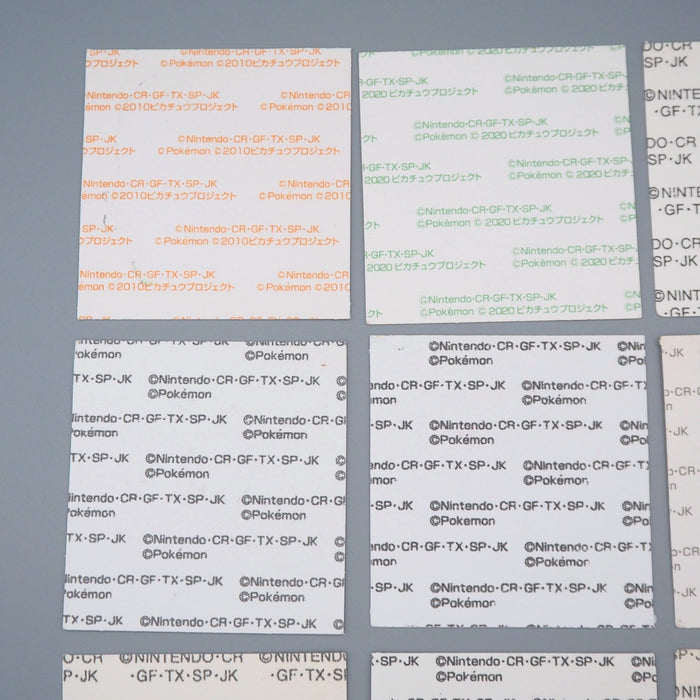 ©Nintendo・CR・GF・TX・SP・JK
プロジェクト ©Pokémon ©2010ピカチュウプロジェクト
Nintendo・CR・GF・TX・SP・JK ©Nintendo・CR・GF
émon ©2010ピカチュウプロジェクト ©Pokémon ©2010
SP・JK ©Nintendo・CR・GF・TX・SP・JK
プロジェクト ©Pokémon ©2010ピカチュウプロジェクト
Nintendo・CR・GF・TX・SP・JK ©Nintendo・CR・GF
émon ©2010ピカチュウプロジェクト ©Pokémon ©2010
SP・JK ©Nintendo・CR・GF・TX・SP・JK
プロジェクト ©Pokémon ©2010ピカチュウプロジェクト
Nintendo・CR・GF・TX・SP・JK ©Nintendo・CR
émon ©2010ピカチュウプロジェクト ©Pokémon ©2010
©Pokémon ©2020ピカチュウプロジェクト
・GF・TX・SP・JK ©Nintendo・CR・GF・TX・SP・
2020ピカチュウプロジェクト ©Pokémon ©2020ピカチュウプロ
©Nintendo・CR・GF・TX・SP・JK
©Pokémon ©2020ピカチュウプロジェクト
・GF・TX・SP・JK ©Nintendo・CR・GF・TX・SP・
2020ピカチュウプロジェクト ©Pokémon ©2020ピカチュウプロジェ
©Nintendo・CR・GF・TX・SP・JK
クト ©Pokémon ©2020ピカチュウプロジェクト
・GF・TX・SP・JK ©Nintendo・CR・GF・TX・SP・
2020ピカチュウプロジェクト ©Pokémon ©2020ピカチュウプロジェ
©Nintendo・CR・GF・TX・SP・JK ©N
©Pokémon ©2020ピカチュウプロジェクト ©P
DO・CR
SP・JK
©NINTE
・GF・T
DO・CR
SP・JK
©NINTE
・GF・T
DO・CR
SP・JK
©NINT
・GF・
Nintendo・CR・GF・TX・SP・JK ©Nintendo・CR・G
okémon ©Pokémon
TX・SP・JK ©Nintendo・CR・GF・TX・SP・JK ©
©Pokémon
Nintendo・CR・GF・TX・SP・JK ©Nintendo・CR・G
okémon ©Pokémon
TX・SP・JK ©Nintendo・CR・GF・TX・SP・JK ©
©Pokémon ©
intendo・CR・GF・TX・SP・JK ©Nintendo・CR・G
okémon ©Pokémon
TX・SP・JK ©Nintendo・CR・GF・TX・SP・JK
©Pokémon
intendo・CR・GF・TX・SP・JK ©Nintendo・CR・GF
okémon ©Pokémon
TX・SP・JK ©Nintendo・CR・GF・TX・SP・JK
©Nintendo・CR・GF・TX・SP・JK ©Nin
©Pokémon ©Pok
endo・CR・GF・TX・SP・JK ©Nintendo・CR・GF・T
mon ©Pokémon
・SP・JK ©Nintendo・CR・GF・TX・SP・JK ©Nin
©Pokémon ©Pok
endo・CR・GF・TX・SP・JK ©Nintendo・CR・GF・TX
mon ©Pokémon
SP・JK ©Nintendo・CR・GF・TX・SP・JK ©Nin
©Pokemon ©Po
endo・CR・GF・TX・SP・JK ©Nintendo・CR・GF・TX
mon ©Pokémon
SP・JK ©Nintendo・CR・GF・TX・SP・JK ©Nin
©Pokémon ©Po
endo・CR・GF・TX・SP・JK ©Nintendo・CR・GF・TX
DO・CR ©NINTENDO・CR ©NINTENDO
SP・JK ・GF・TX・SP・JK ・GF・TX・SP・JK
X・SP・JK ©Nintendo・CR・GF・TX・SP・JK
©Pokémon